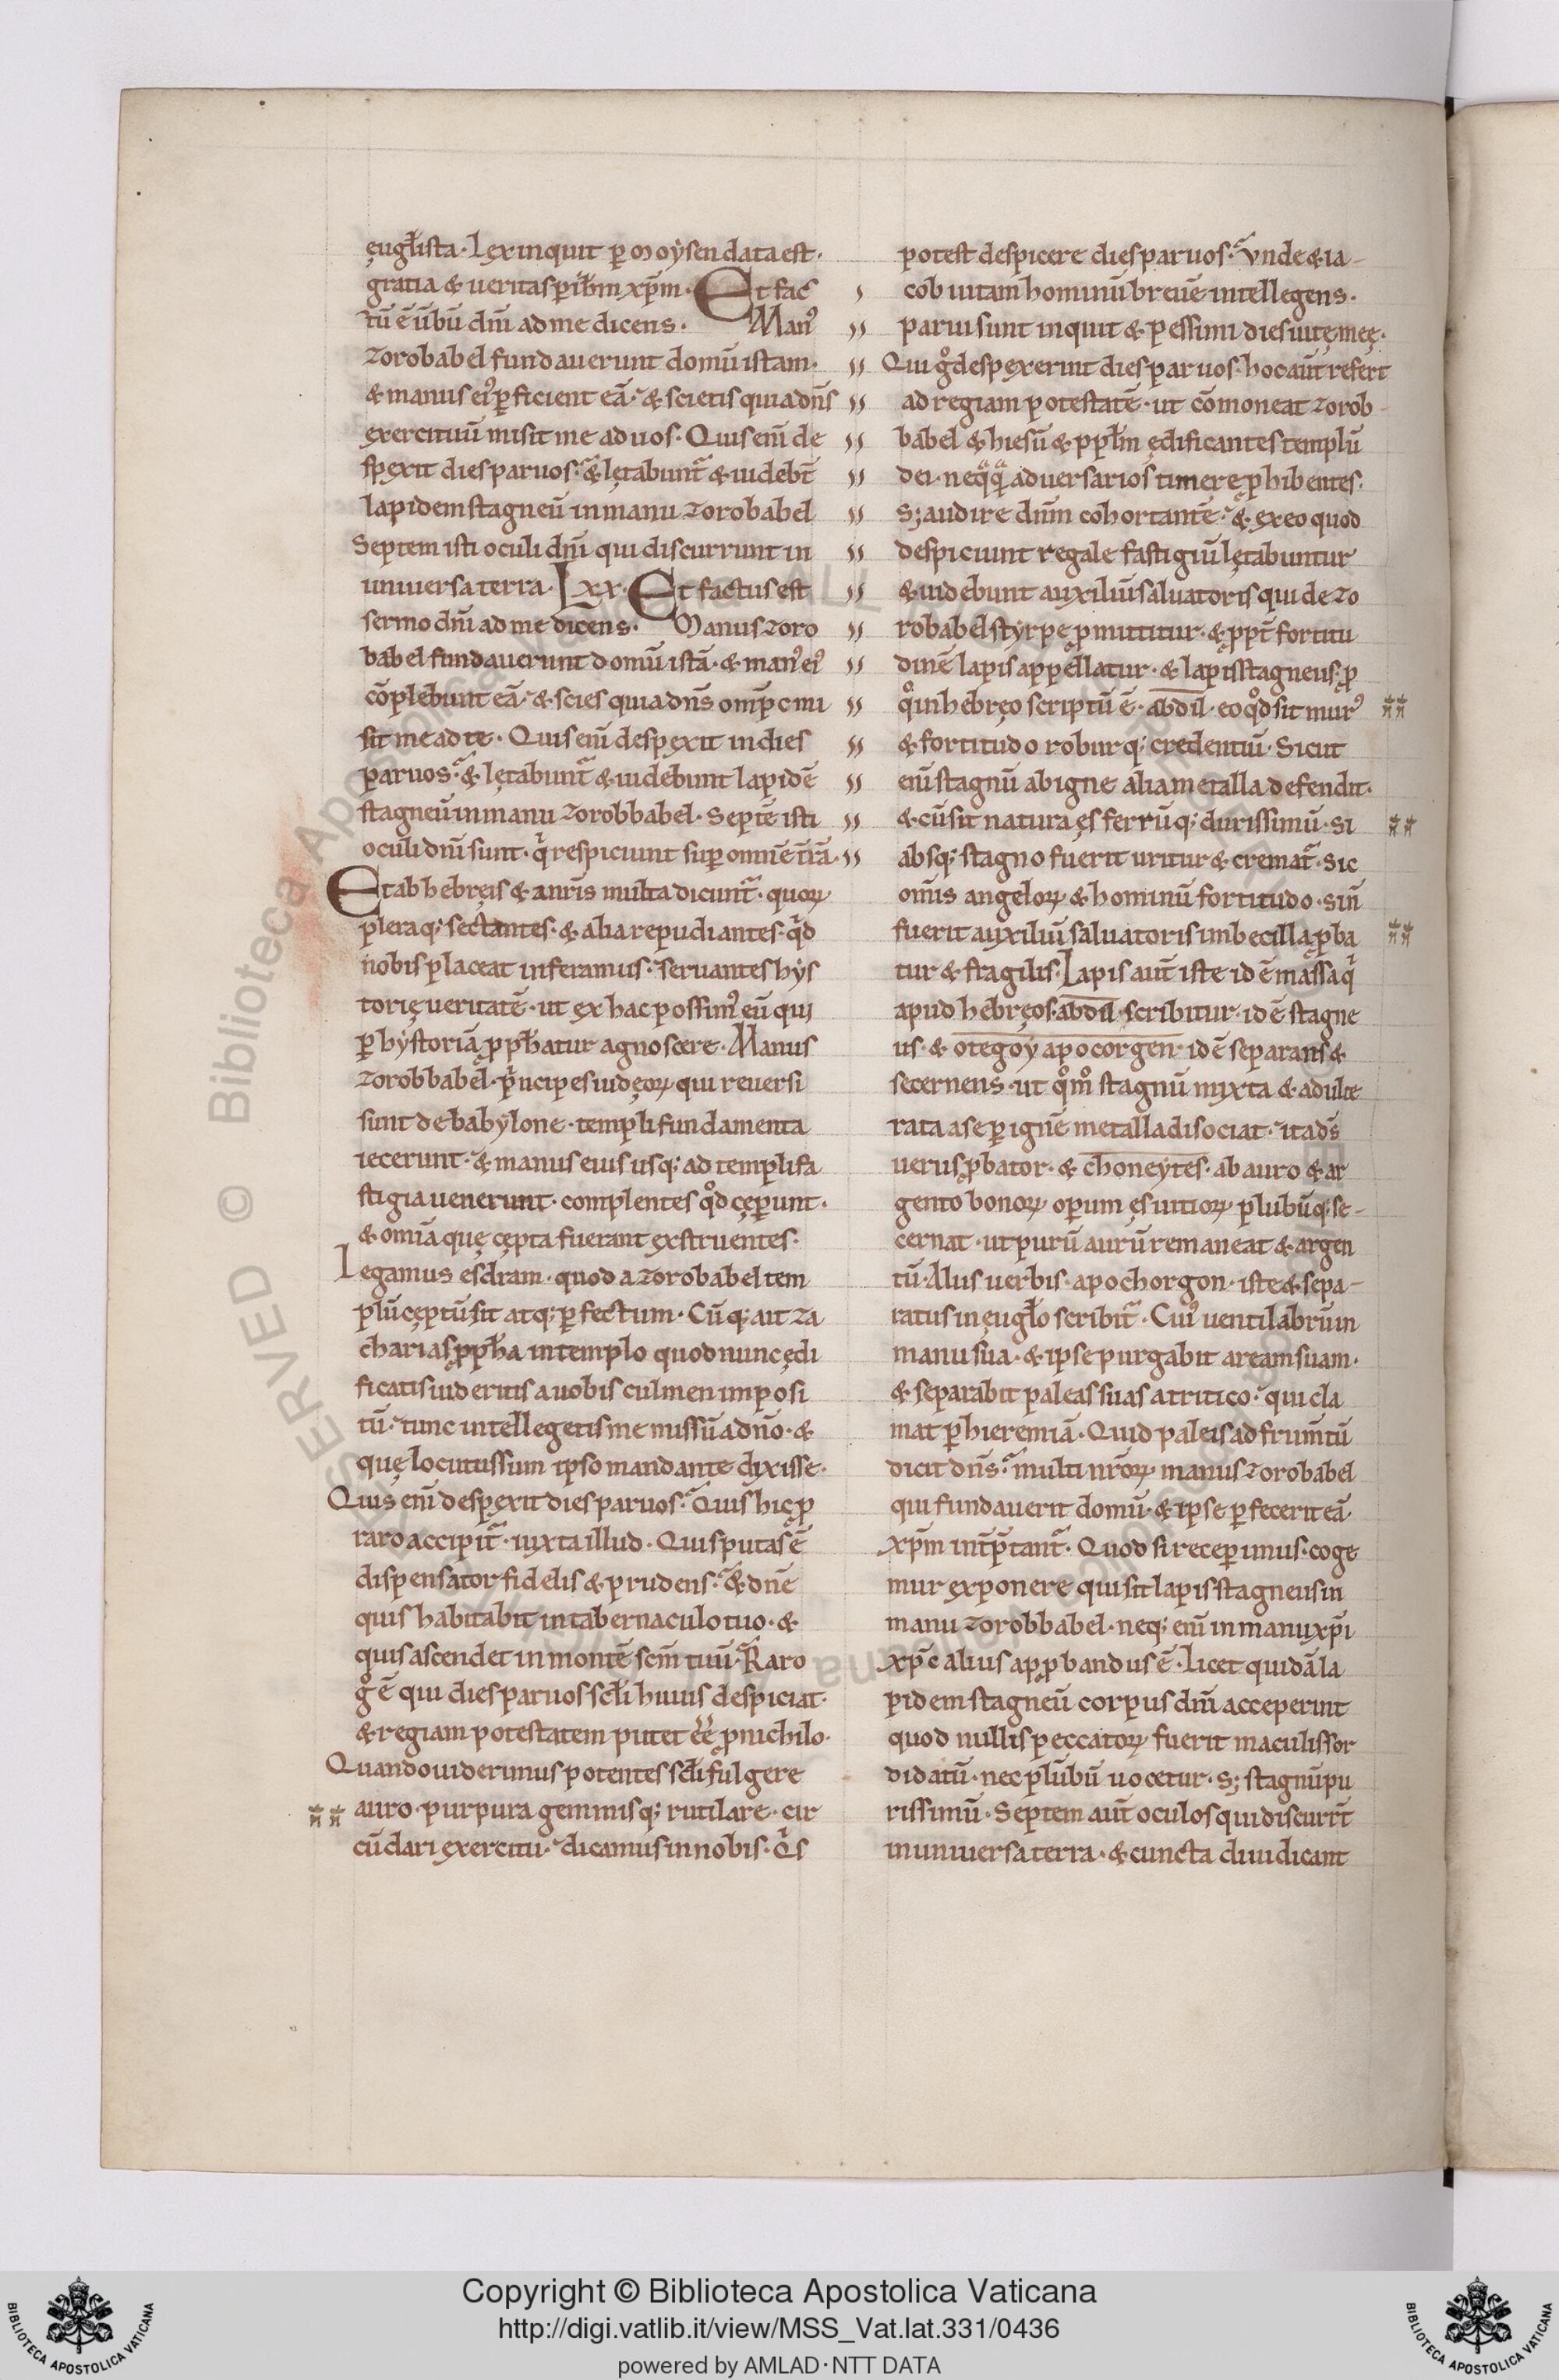 ęugl̄ista · Lex inquit ꝑ moẏsen data est ·
gratia & ueritas ꝑ ih̄m xp̄m · Et fac
tū ē ūbū dn̄i ad me dicens · Manꝰ
Zorobabel fundauerunt domū istam ·
& manus eiꝰ ꝑficient eā · & scietis quia dn̄s
exercituū misit me ad uos · Quis eni̅ de
spexit dies paruos · & lętabunt᷑ & uidebt̄
lapidem stagneū in manu Zorobabel
Septem isti oculi dn̄i qui discurrunt in
uniuersa terra · Lxx · Et factus est
sermo dn̄i ad me dicens · Manus Zoro
babel fundauerunt domū istā · & manꝰ eiꝰ
cōplebunt eā · & scies quia dn̄s om̄pc mi
sit me ad te · Quis eni̅ despexit in dies
paruos · & lętabunt᷑ & uidebunt lapidē
stagneū in manu Zorobbabel · Septē isti
oculi dn̄i sunt · qͥ respiciunt sup omnē t̄rā ·
Et ab hebręis & a nr̄is multa dicunt᷑ · quoꝝ
pleraq; sectantes · & alia repudiantes · qͥd
nobis placeat inferamus · seruantes hẏs
torię ueritatē · ut ex hac possimꝰ eū qui
ꝑ hẏstoriā ꝓph̄atur agnoscere · Manus
Zorobbabel · pͥncipes iudęoꝝ qui reuersi
sunt de babẏlone · templi fundamenta
iecerunt · & manus eius usq; ad templi fa
stigia uenerunt · complentes qͦd cęꝑunt ·
& omīa quę cępta fuerant exstruentes ·
Legamus esdram · quod a Zorobabel tem
plū cęptū sit atq; ꝑfectum · Cūq; ait Za
charias ꝓph̄a in templo quod nunc ędi
ficatis uideritis a uobis culmen imposi
tū · tunc intellegetis me missū a dn̄o · &
quę locutus sum ipso mandante dixisse ·
Quis eni̅ despexit dies paruos · Quis hic ꝓ
raro accipit᷑ · iuxta illud · Quis putas ē
dispensator fidelis & prudens · & dn̄e
quis habitabit in tabernaculo tuo · &
quis ascendet in montē scm̄ tuū · Raro
gͦ ē qui dies paruos scl̄i huius despiciat ·
& regiam potestatem putet ēē ꝓ nichilo ·
Quando uiderimus potentes scl̄i fulgere
auro · purpura gemmisq; rutilare · cir
cūdari exercitu · dicamus in nobis · Qͥs
potest despicere dies paruos · Vnde & ia-
cob uitam hominū breuē intellegens ·
parui sunt inquit & pessimi dies uitę meę ·
Qui gͦ despexerint dies paruos · hoc aūt refert
ad regiam potestatē · ut cōmoneat Zorob-
babel & hiesū & ppl̄m ędificantes templū
dei · neqͣqͣ aduersarios timere ꝓhibentes ·
s; audire dn̄m cohortantē · & ex eo quod
despiciunt regale fastigiū lętabuntur
& uidebunt auxiliū saluatoris qui de Zo
robabel stẏrpe ꝓmittitur · & ꝓpt̄ fortitu
dinē lapis appellatur · & lapis stagneus · ꝓ
qͦ in hebręo scriptū ē · abdil · eo qͦd sit murꝰ
& fortitudo roburq; credentiū · Sicut
eni̅ stagnū ab igne alia metalla defendit ·
& cū sit natura ęs ferrūq; durissimū · si
absq; stagno fuerit uritur & cremat᷑ · sic
om̄is angeloꝝ & hominū fortitudo · sin̄
fuerit auxiliū saluatoris imbecilla ꝓba
tur & fragilis · Lapis aūt iste id ē massa qͥ
apud hebręos · abdil · scribitur · id ē stagne
us · & otegoẏ apocorgen · id ē separans &
secernens · ut qͦmͦ stagnū mixta & adulte
rata a se ꝑ ignē metalla disociat · ita d̄s
uerus ꝓbator · & choneẏtes · ab auro & ar
gento bonoꝝ operum ęs uitioꝝ plubūq; se-
cernat · ut purū aurū remaneat & argen
tū · Alius uerbis · apochorgon · iste & sepa-
ratus in ęugl̄o scribit᷑ · Cuiꝰ uentilabrū in
manu sua · & ipse purgabit aream suam ·
& separabit paleas suas a tritico · qui cla
mat ꝑ hieremiā · Quid paleis ad frum̄tū
dicit dn̄s · multi nr̄oꝝ manus Zorobabel
qui fundauerit domū · & ipse ꝑfecerit eā
xp̄m int̄p̄tant᷑ · Quod si recepimus · coge
mur exponere qui sit lapis stagneus in
manu Zorobbabel · neq; eni̅ in manu xp̄i
xp̄c alius appbandus ē · Licet quidā la
pidem stagneū corpus dn̄i acceperint
quod nullis peccatoꝝ fuerit maculis sor
didatū · nec plūbū uocetur · s; stagnū pu
rissimū · Septem aūt oculos qui discurrt̄
in uniuersa terra · & cuncta diiudicant
Copyright © Biblioteca Apostolica Vaticana
http://digi.vatlib.it/view/MSS_Vat.lat.331/0436
powered by AMLAD · NTT DATA
BIBLIOTECA APOSTOLICA VATICANA
BIBLIOTECA APOSTOLICA VATICANA